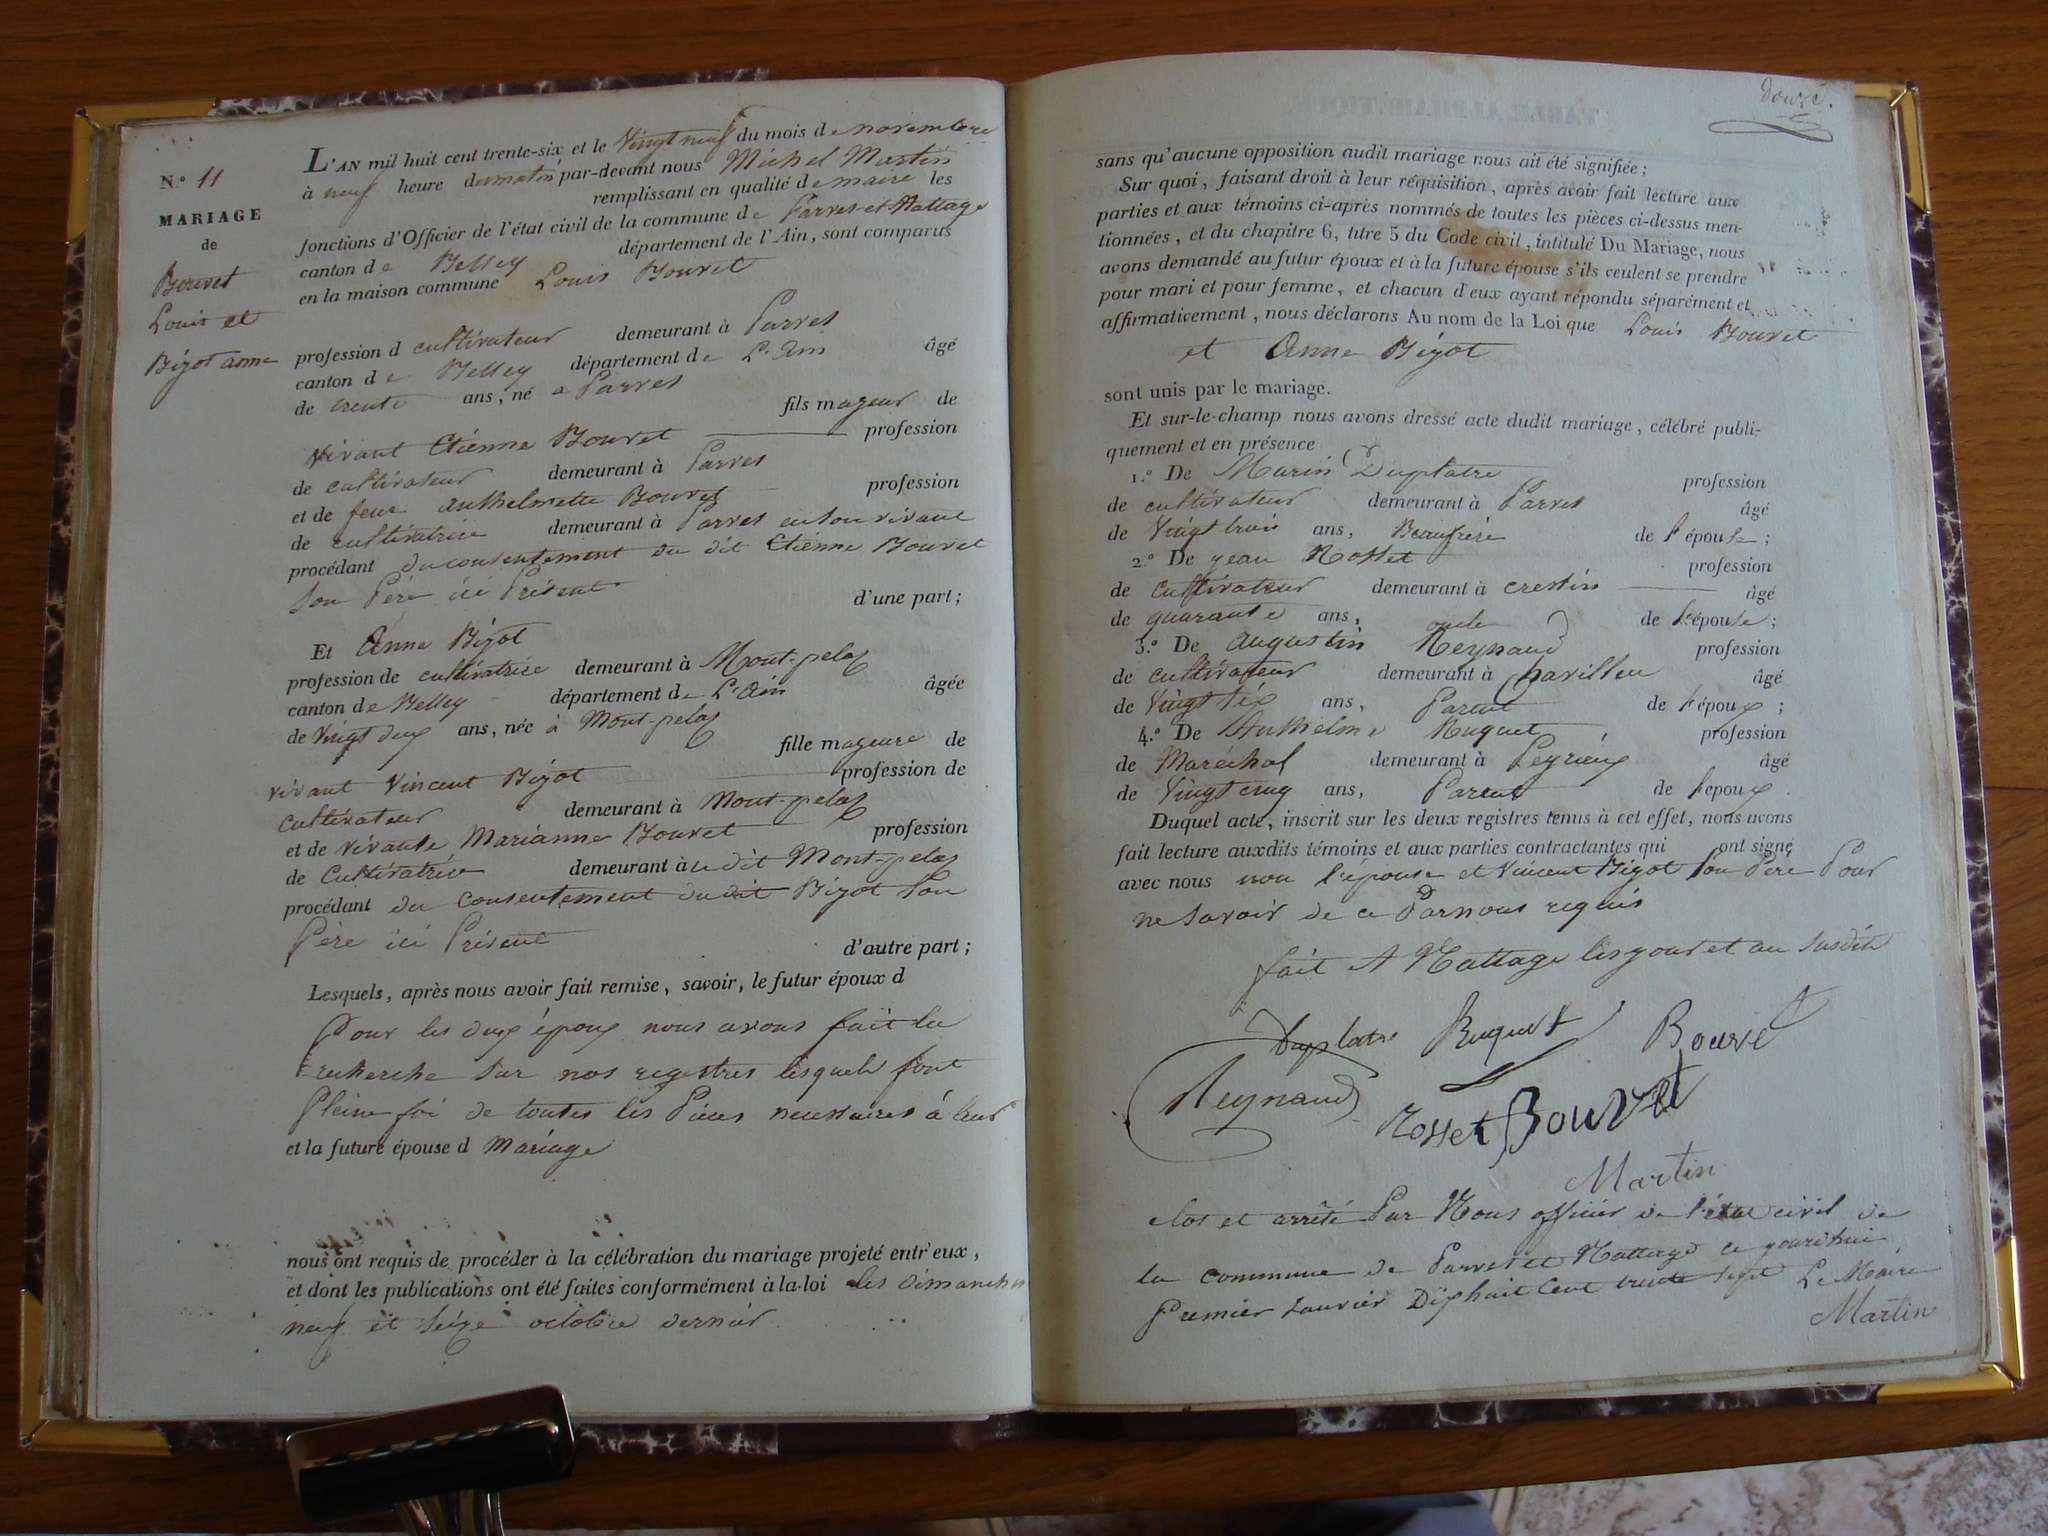 N.º 11
MARIAGE
de
Bouvet
Louis et
Bigot anne
L'AN mil huit cent trente-six et le Vingt neuf du mois de novembre
à neuf heure du matin par-devant nous Michel Martin
remplissant en qualité de maire les
fonctions d'Officier de l'état civil de la commune de Parves et Nattage
canton de Belley département de l'Ain, sont comparus
en la maison commune Louis Bouvet
profession d cultivateur demeurant à Parves
canton de Belley département de L'Ain âgé
de trente ans, né a Parves
fils mageur de
vivant Etiénne Bouvet profession
de cultivateur demeurant à Parves
et de feue anthelmette Bouvet profession
de cultivatrice demeurant à Parves en son vivant
procédant du consentement du dit Etiénne Bouvet
son Pére ici Présent d'une part;
Et Anne Bigot
profession de cultivatrice demeurant à Mont-pelaz
canton de Belley département de L'Ain âgée
de Vingt deux ans, née à Mont-pelaz
fille mageure de
vivant Vincent Bigot profession de
cultivateur demeurant à Mont-pelaz
et de vivante Marianne Bouvet profession
de Cultivatrice demeurant à u dit Mont-pelaz
procédant du consentement du dit Bigot son
Père ici Présent d'autre part;
Lesquels, après nous avoir fait remise, savoir, le futur époux d
Pour les deux époux nous avons fait la
recherche sur nos regestres lesquels font
Pleine foi de toutes les Pièces necessaires á leur
et la future épouse d Mariage
nous ont requis de procéder à la célébration du mariage projeté entr'eux,
et dont les publications ont été faites conformément à la loi les Dimanches
neuf et seize octobre dernier
douzé.
sans qu'aucune opposition audit mariage nous ait été signifiée;
Sur quoi, faisant droit à leur réquisition, après avoir fait lecture aux
parties et aux témoins ci-après nommés de toutes les pièces ci-dessus men-
tionnées, et du chapitre 6, titre 5 du Code civil, intitulé Du Mariage, nous
avons demandé au futur époux et à la future épouse s'ils veulent se prendre
pour mari et pour femme, et chacun d'eux ayant répondu séparément et
affirmativement, nous déclarons Au nom de la Loi que Louis Bouvet
et Anne Bigot
sont unis par le mariage.
Et sur-le-champ nous avons dressé acte dudit mariage, célébré publi-
quement et en présence
1.º De Marin Duplatre profession
de cultivateur demeurant à Parves âgé
de Vingt trois ans, Beaufrére de l'épouse;
2.º De jean Rosset profession
de cultivateur demeurant à crestin âgé
de quarante ans, oncle de l'épouse;
3.º De augustin Reynaud profession
de cultivateur demeurant à Chavilleu âgé
de Vingt six ans, Parent de l'époux;
4.º De Anthelme Ruquet profession
de Maréchal demeurant à Peyrieux âgé
de Vingt cinq ans, Parent de l'époux.
Duquel acte, inscrit sur les deux registres tenus à cet effet, nous avons
fait lecture auxdits témoins et aux parties contractantes qui ont signé
avec nous non l'épouse et Vincent Bigot son Pére Pour
ne savoir de ce Par nous requis
fait A Nattage les jour et an susdits
Duplatre Ruquet Bouvet
Reynaud Rosset Bouvet
Martin
clos et arrêté Par Nous officier de l'état civil de
la commune de Parves et Nattage ce jourdhui
Premier Janvier Dixhuit Cent trente sept Le Maire
Martin